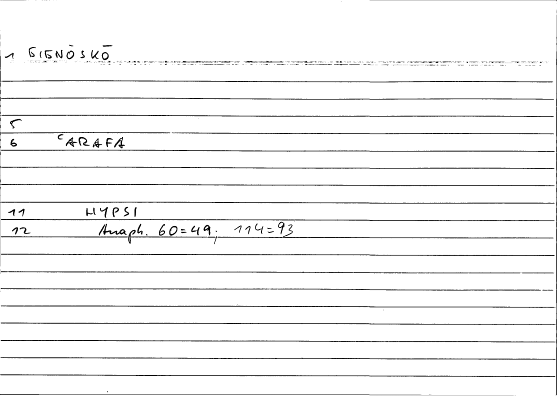 1 GIGNŌSKŌ
5
6 ʿARAFA
11 HYPSI
12 Anaph. 60=49; 114=93